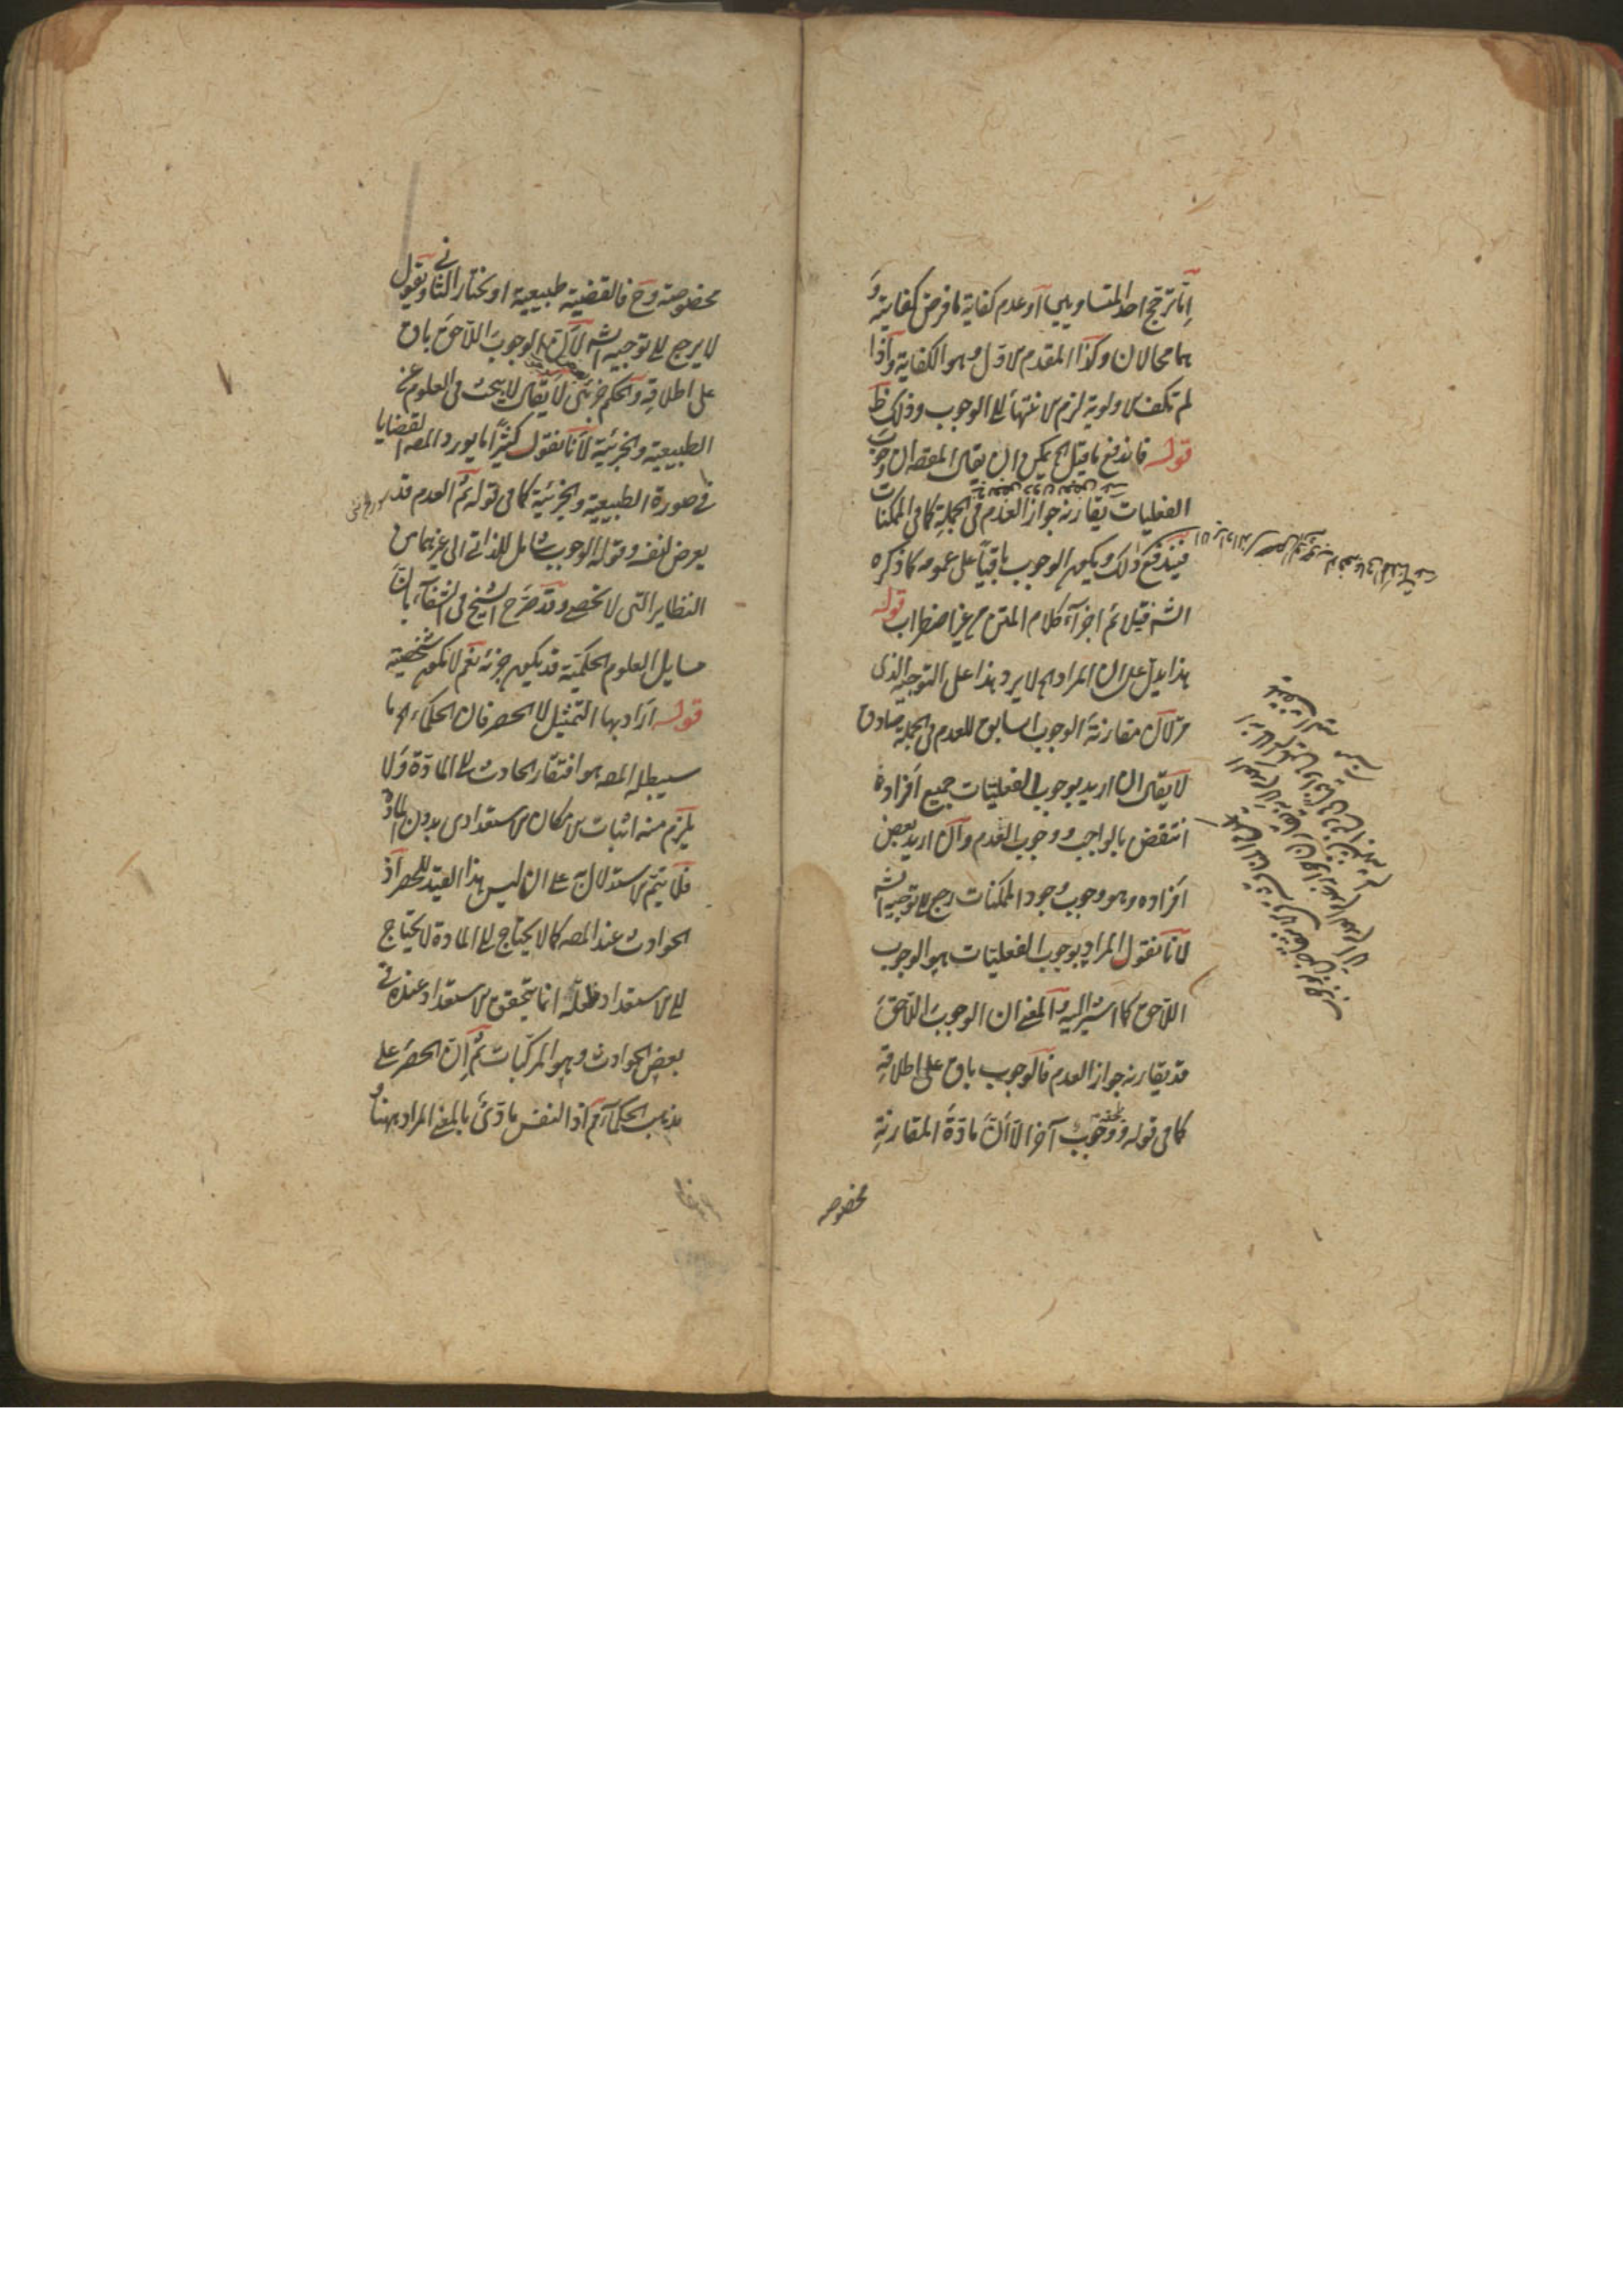 إما ترجح احد المتساويين او عدم كفاية ما فرض كفايته و
هما محالان وكذا المقدم الاول وهو الكفاية واذا
لم تكف الاولوية لزم الانتهاء الى الوجوب وذلك ظ
قوله فاندفع ما قيل الخ يمكن ان يقال المقصه ان وجوب
الفعليات يقارنه جواز العدم في الجملة كما في الممكنات
فيندفع ذلك ويكون الوجوب باقيا على عمومه كما ذكره
الشه قيل ثم اجزآء كلام المتن من غير اضطراب قوله
هذا يدل على ان المراد الخ لا يرد هذا على التوجيه الذي
مر لان مقارنة الوجوب السابق للعدم في الجملة صادق
لا يقال ان اريد بوجوب الفعليات جميع افراده
انتقض بالواجب ووجوب العدم وان اريد بعض
افراده وهو وجوب وجود الممكنات رجع الى توجيه الشه
لانا نقول المراد بوجوب الفعليات هو الوجوب
اللاحق كما اشير اليه والمعنى ان الوجوب اللاحق
قد يقارنه جواز العدم فالوجوب باق على اطلاقه
كما في قوله ووجوب آخر الا ان مادة المقارنة
مخصوصه
مخصوصة وح فالقضية طبيعية او نختار الثاني ونقول
لا يرجع الى توجيه الشه لان الوجوب اللاحق باق
على اطلاقه والحكم جزئي لا يقال لا يبحث في العلوم عن
الطبيعية والجزئية لانا نقول كثيرا ما يورد المصه القضايا
في صورة الطبيعية والجزئية كما في قوله ثم العدم قد
يعرض لنفسه وقوله الوجوب شامل للذاتي الى غيرهما من
النظاير التي لا تحصى وقد صرح الشيخ في الشفآء بان
مسايل العلوم الحكمية قد يكون جزئية نعم لا تكون شخصية
قوله اراد بها التمثيل لا الحصر فان الحكماء الخ ما
سيبطله المصه هو افتقار الحادث الى المادة ولا
يلزم منه اثبات الامكان الاستعدادي بدون المادة
فلا يتم الاستدلال به على ان ليس هذا القيد للحصر اذ
الحوادث عند المصه كما لا يحتاج الى المادة لا يحتاج
الى الاستعداد فلعله انما يتحقق الاستعداد عنده في
بعض الحوادث وهو المركبات ثم إن الحصر على
مذهب الحكماء تم اذ النفس مادي بالمعنى المراد ههنا و